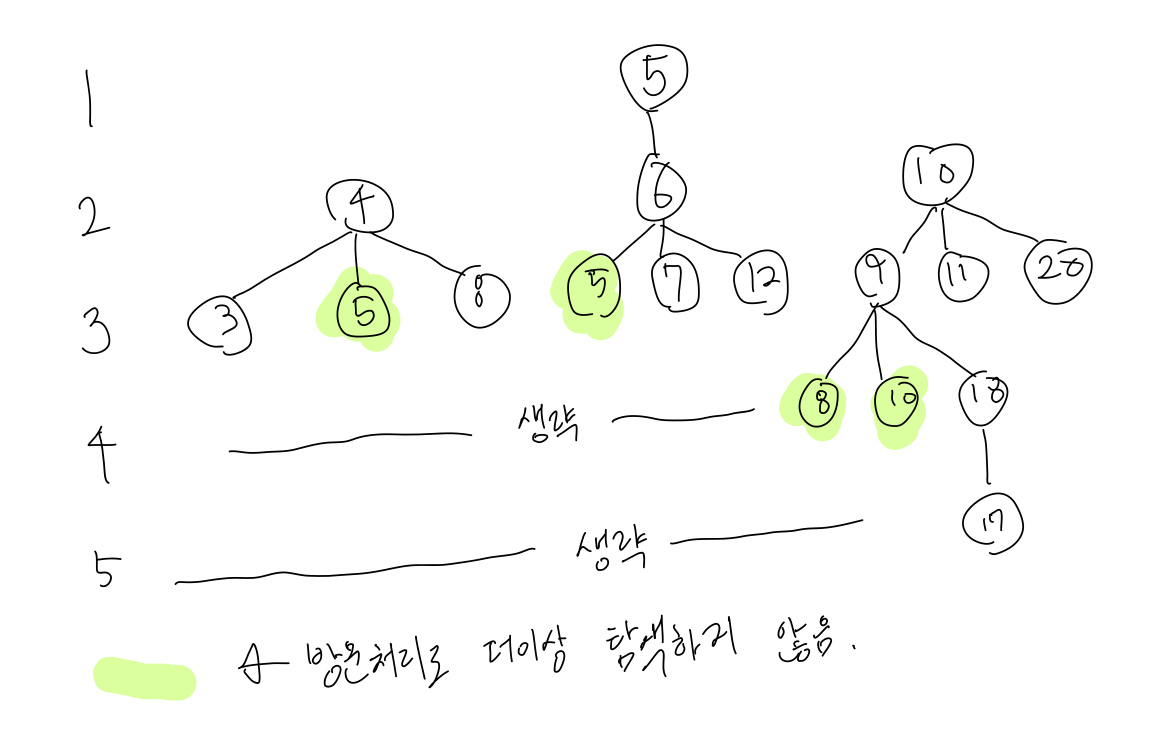 1
5
2
4
6
10
3
3
5
8
5
7
12
9
11
20
4
생략
8
10
18
5
생략
17
방문처리로 더이상 탐색하지 않음.